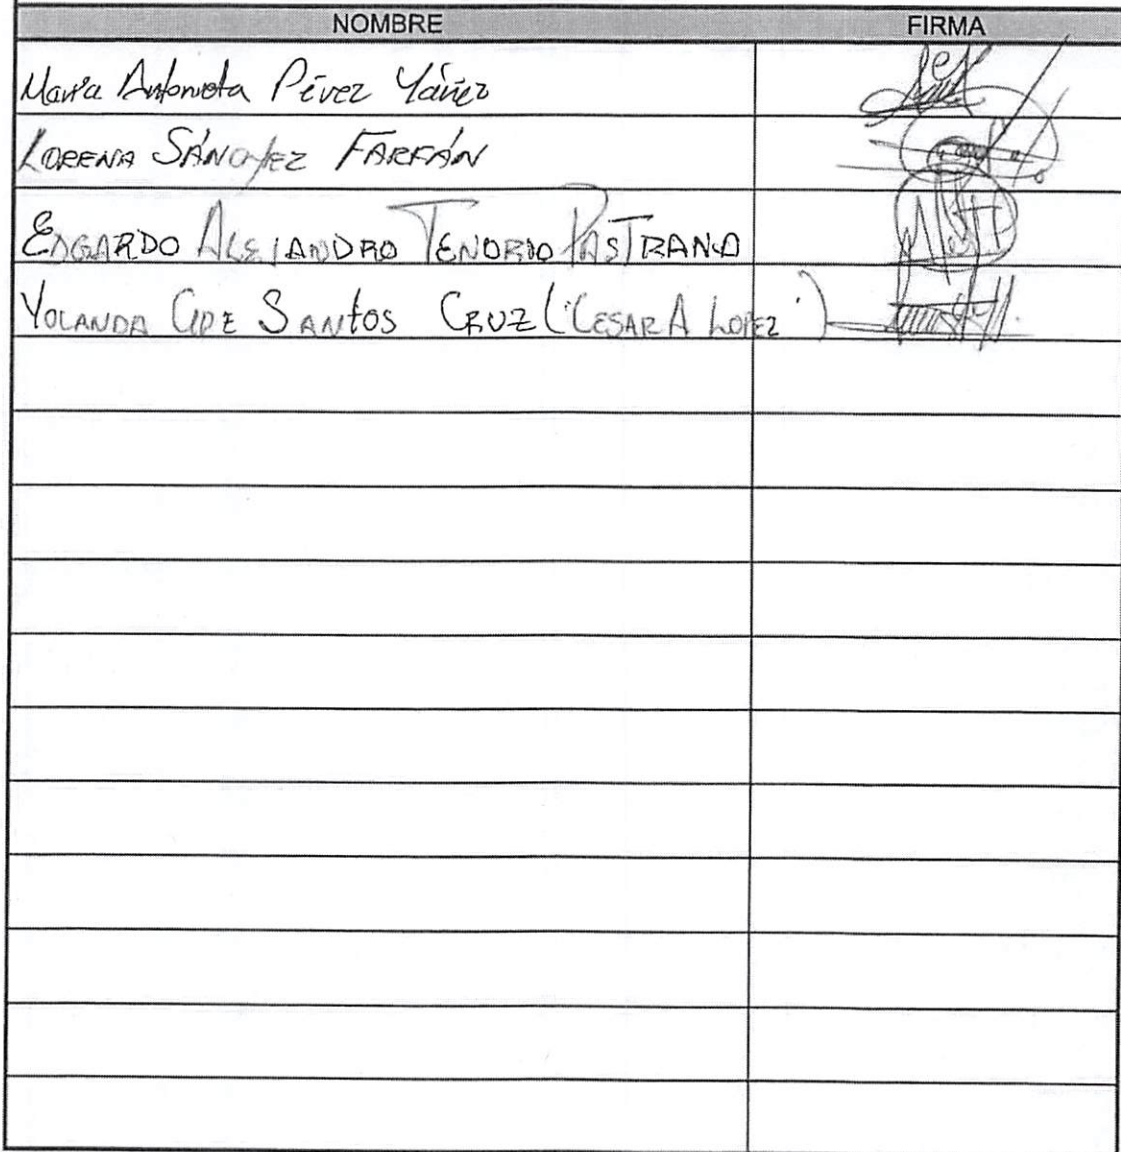 NOMBRE FIRMA
María Antonieta Pérez Yáñez
LORENA SÁNCHEZ FARFÁN
EDGARDO ALEJANDRO TENORIO PASTRANA
YOLANDA SANTOS CRUZ (CESAR A LOPEZ)